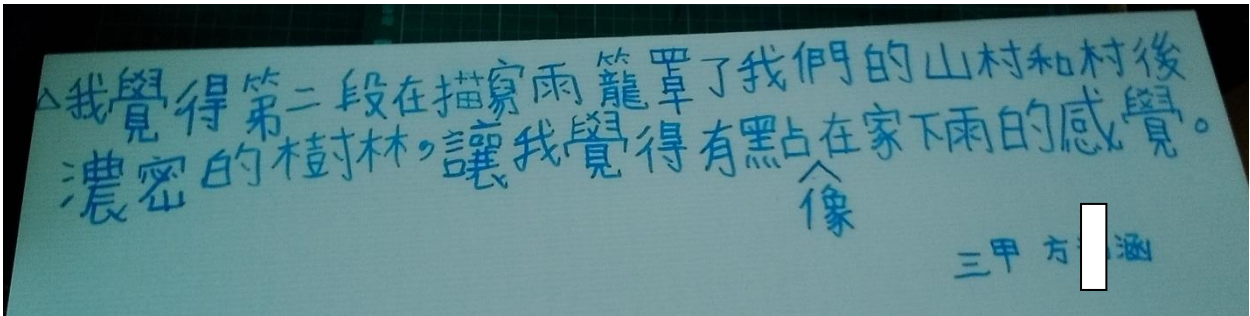 △我覺得第二段在描寫雨籠罩了我們的山村和村後
濃密的樹林，讓我覺得有點在家下雨的感覺。
像
三甲 方 涵